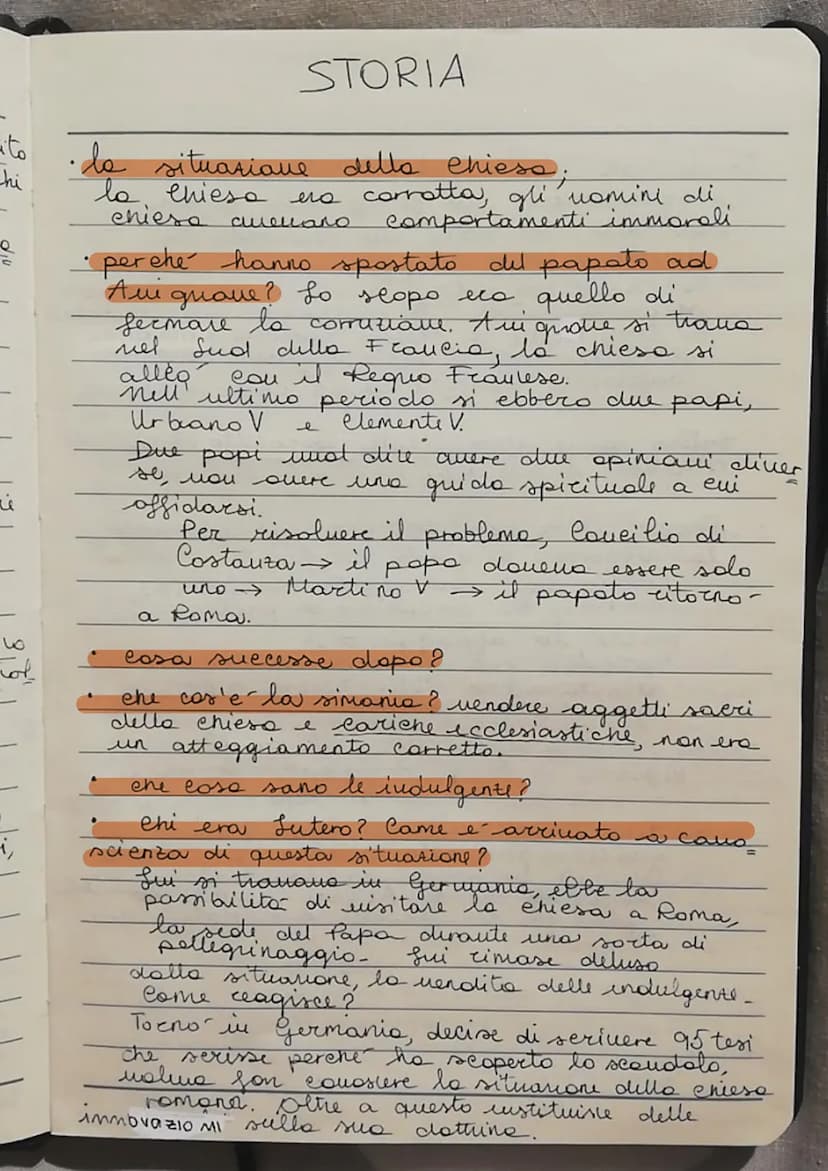 ito
hi
STORIA
· la situazione della chiesa;
la chiesa era corrotta, gli uomini di
chiesa avevano comportamenti immorali
· perché hanno spostato del papato ad
Avignone? Lo scopo era quello di
fermare la corruzione. Avignone si trova
nel Sud della Francia, la chiesa si
alleò con il Regno Francese.
Nell'ultimo periodo si ebbero due papi,
Urbano V e Clemente V.
Due papi vuol dire avere due opinioni diver=
se, non avere una guida spirituale a cui
affidarsi.
Per risolvere il problema, Concilio di
Costanza → il papa doveva essere solo
uno → Martino V → il papato ritorno-
a Roma.
· cosa successe dopo?
· che cos'è la simonia? vendere oggetti sacri
della chiesa e cariche ecclesiastiche, non era
un atteggiamento corretto.
· che cosa sono le indulgenze?
· chi era Lutero? Come è arrivato a cono=
scienza di questa situazione?
Lui si trovava in Germania, ebbe la
possibilità di visitare la chiesa a Roma,
la sede del Papa durante una sorta di
pellegrinaggio- Lui rimase deluso
dalla situazione, la vendita delle indulgenze-
Come reagisce?
Tornò in Germania, decise di scrivere 95 tesi
che scrisse perché ha scoperto lo scandalo,
voleva far conoscere la situazione della chiesa
romana. Oltre a questo institutisce delle
innovazioni sulla sua dottrina.